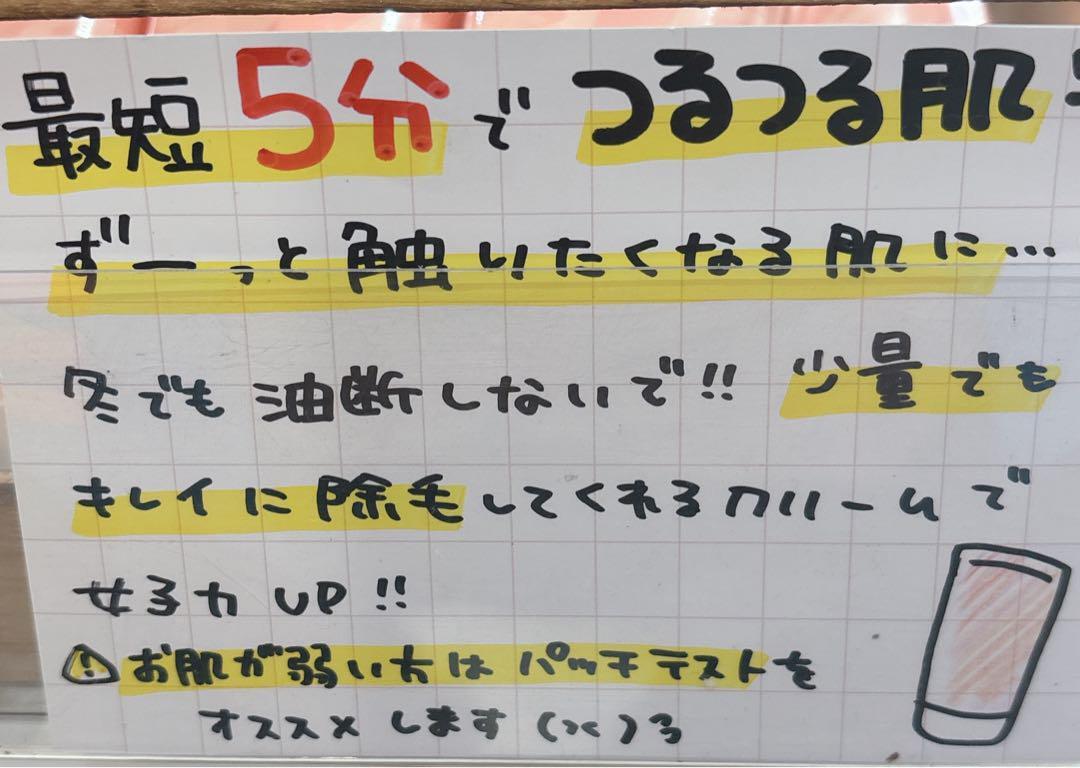 最短5分でつるつる肌
ずーっと触いたくなる肌に…
冬でも油断しないで!! 少量でも
キレイに除毛してくれるクリームで
女子力UP!!
お肌が弱い方はパッチテストを
オススメします